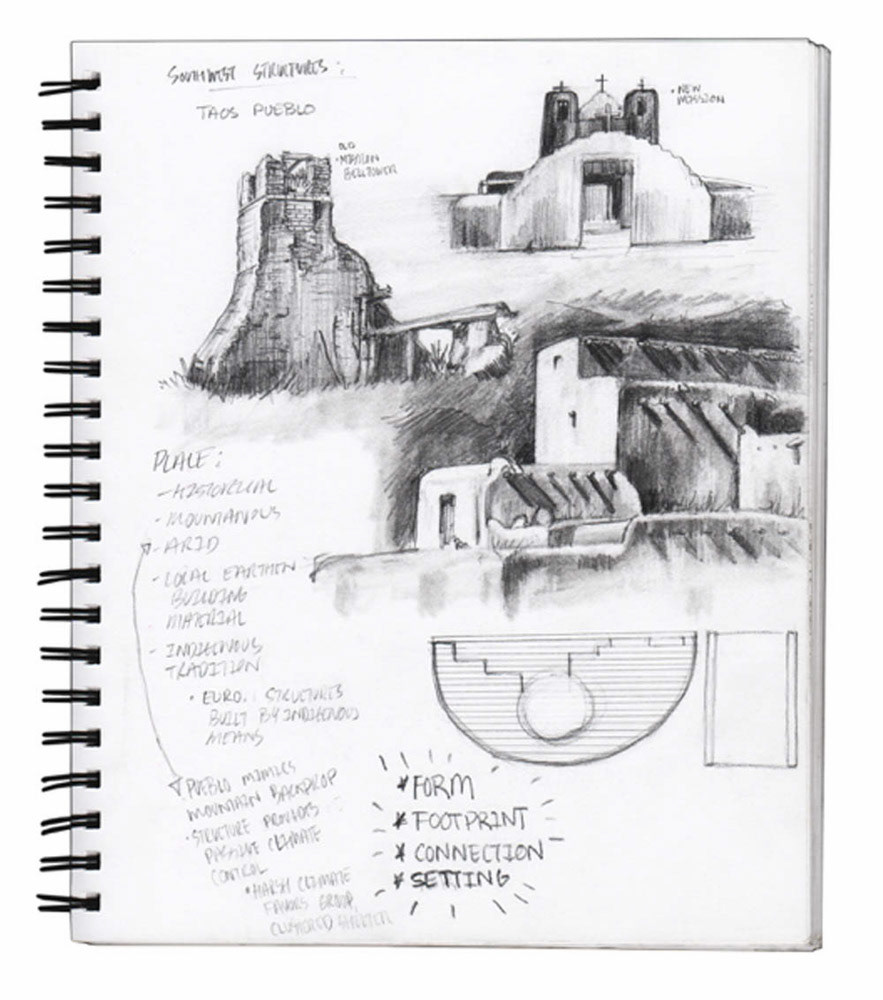 SOUTHWEST STRUCTURES:
TAOS PUEBLO
• NEW
MISSION
OLD
• MISSION
BELLTOWER
PLACE:
- HISTORICAL
- MOUNTAINOUS
- ARID
- LOCAL EARTHEN
BUILDING
MATERIAL
- INDIGENOUS
TRADITION
• EURO. STRUCTURES
BUILT BY INDIGENOUS
MEANS
PUEBLO MIMICS
MOUNTAIN BACKDROP
• STRUCTURE PROVIDES
PASSIVE CLIMATE
CONTROL
• HARSH CLIMATE
FAVORS GROUP,
CLUSTERED SHELTER
* FORM
* FOOTPRINT
* CONNECTION
* SETTING